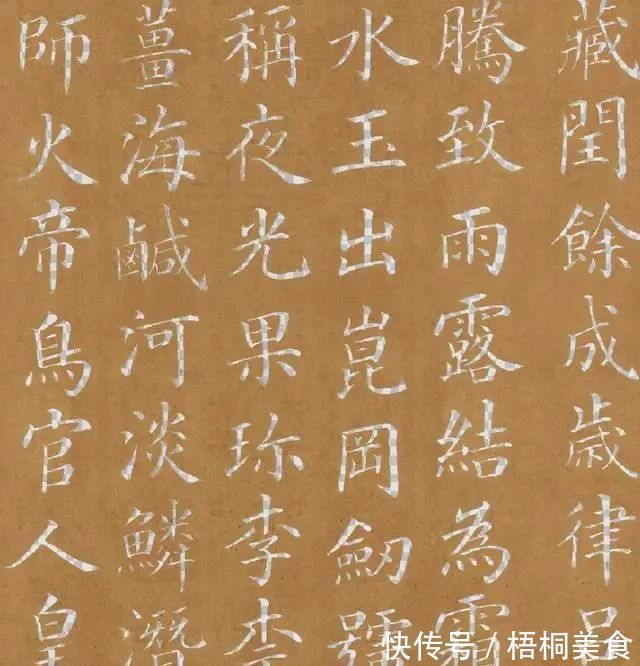 藏閏餘成歲律呂
騰致雨露結為霜
水玉出崑岡劒號
稱夜光果珎李柰
薑海鹹河淡鱗潛
師火帝鳥官人皇
快传号 / 梧桐美食